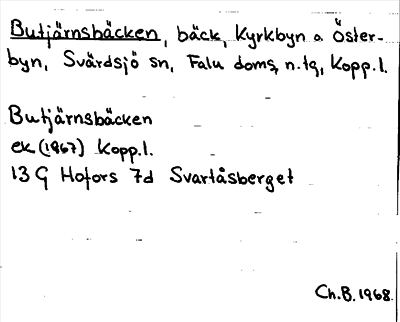 Butjärnsbäcken, bäck, Kyrkbyn o. Öster-
byn, Svärdsjö sn, Falu doms. n. tg, Kopp.l.
Butjärnsbäcken
ek (1967) Kopp.l.
13 G Hofors 7d Svartåsberget
Ch.B. 1968.